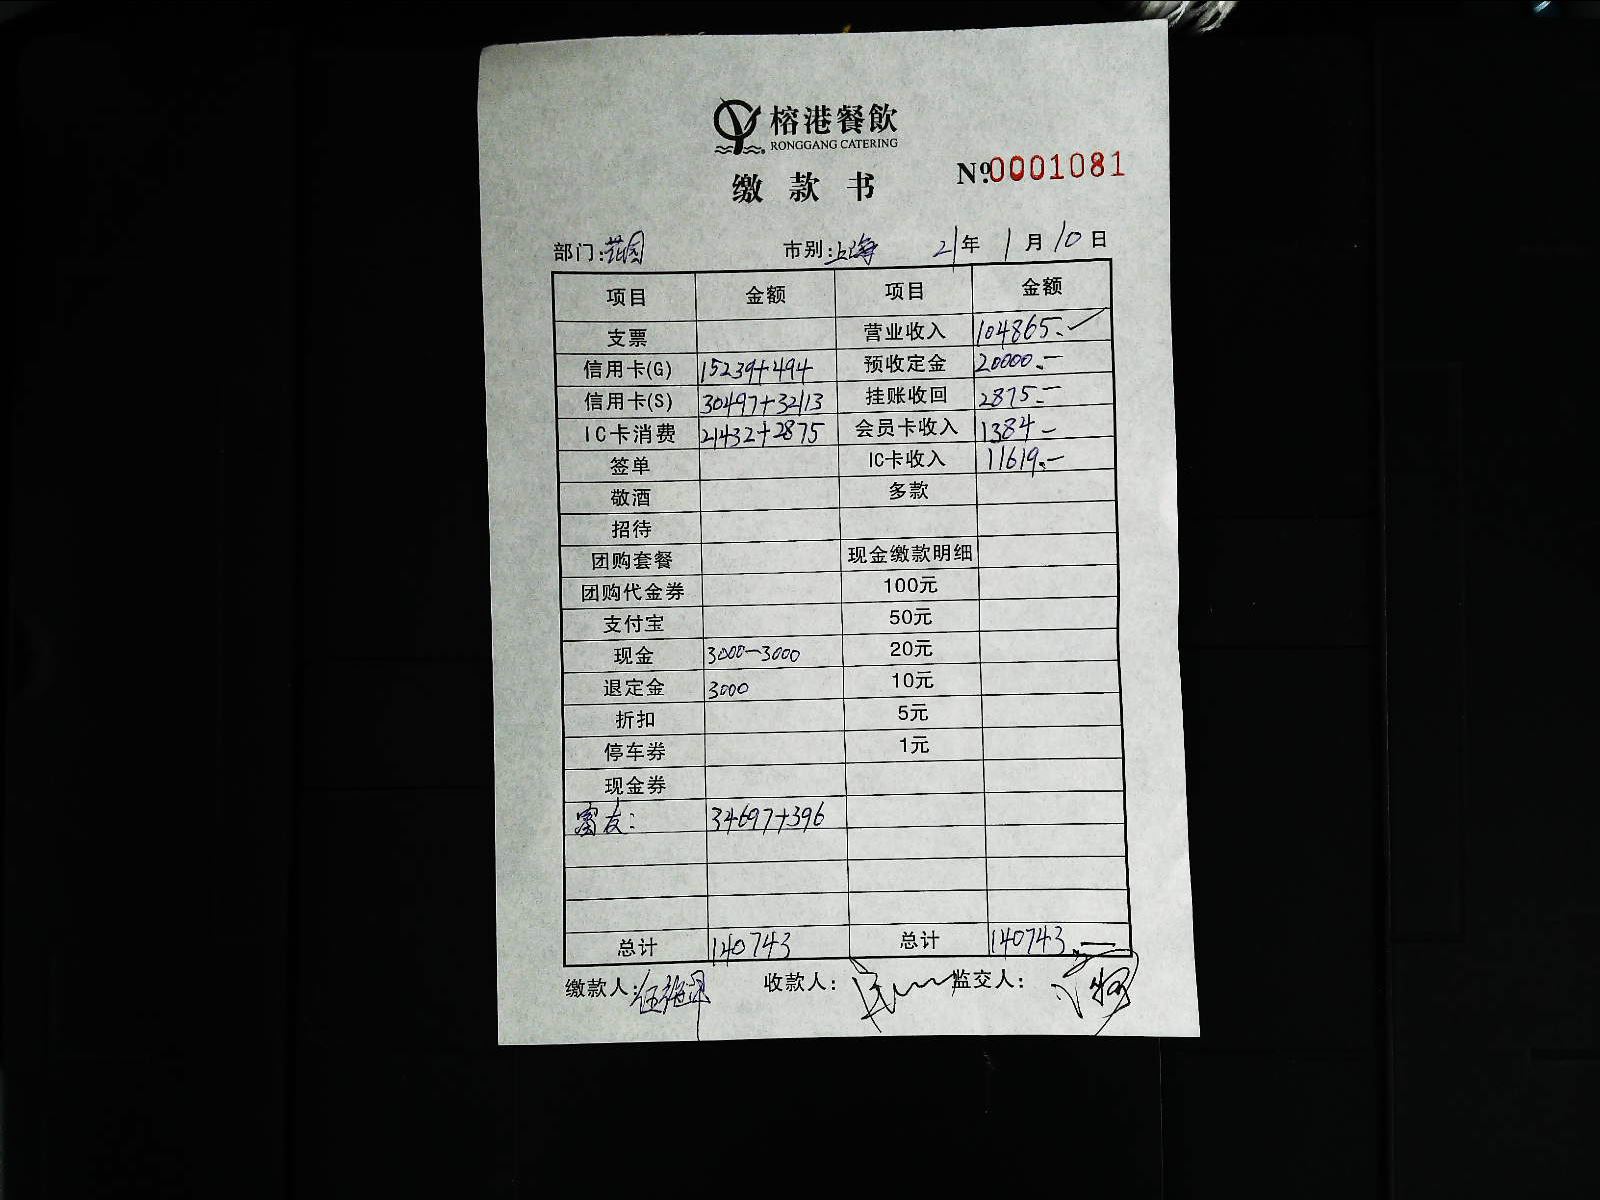 榕港餐飲
RONGGANG CATERING
缴款书
№0001081
部门:花园 市别:上海 21年1月10日
项目 金额 项目 金额
支票 营业收入 104865.-
信用卡(G) 15239+494 预收定金 20000.-
信用卡(S) 30497+32113 挂账收回 2875.-
IC卡消费 21432+2875 会员卡收入 1384-
签单 IC卡收入 11619.-
敬酒 多款
招待
团购套餐 现金缴款明细
团购代金券 100元
支付宝 50元
现金 3000-3000 20元
退定金 3000 10元
折扣 5元
停车券 1元
现金券
友: 34697+396
总计 140743 总计 140743.-
缴款人: 收款人: 监交人: